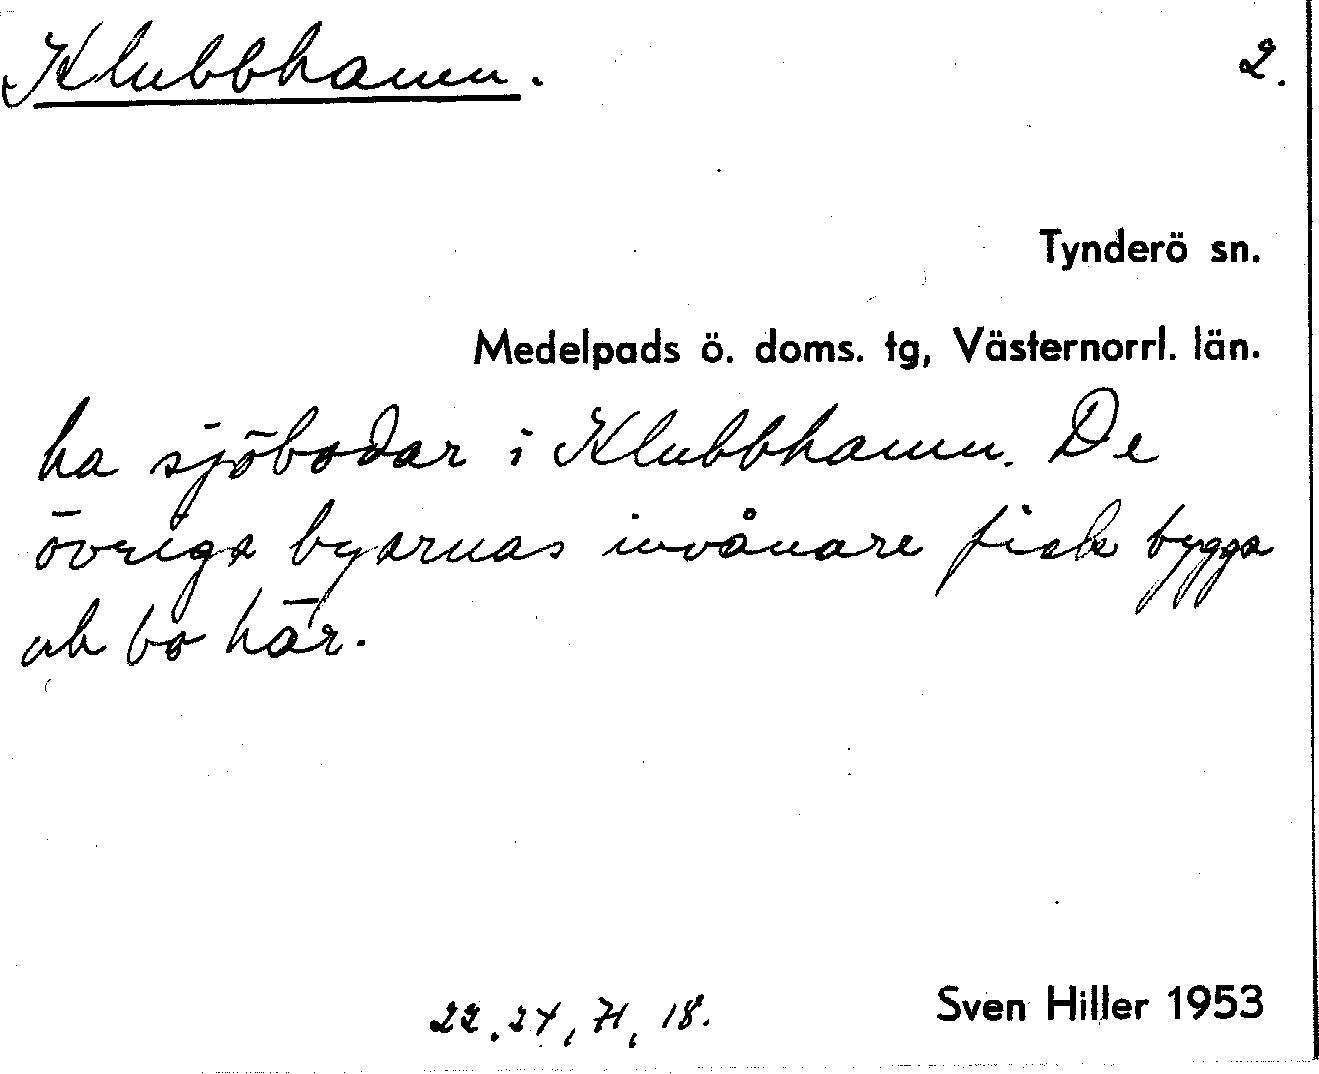 Klubbhamn. 2.
Tynderö sn.
Medelpads ö. doms. tg, Västernorrl. län.
ha sjöbodar i Klubbhamn. De
övriga byarnas invånare fick bygga
och bo här.
22, 24, 71, 18. Sven Hiller 1953